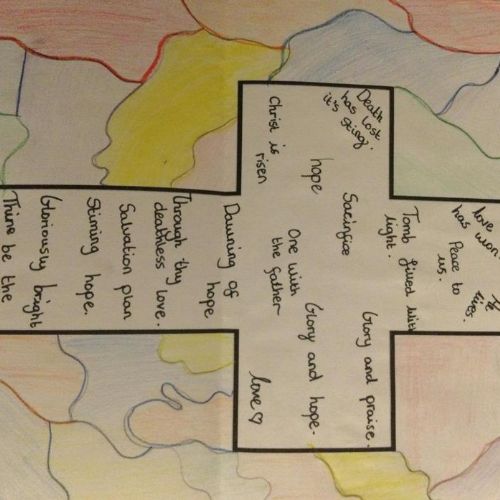 He
lives.
love
has won.
Peace to
us.
Tomb filled with
light.
Death
has lost
it's sting.
Glory and praise.
Sacrifice
hope
Glory and hope.
One with
the father
Christ is
risen
love♡
Dawning of
hope
Through thy
deathless love.
Salvation plan
Stirring hope.
Gloriously bright
Thine be the